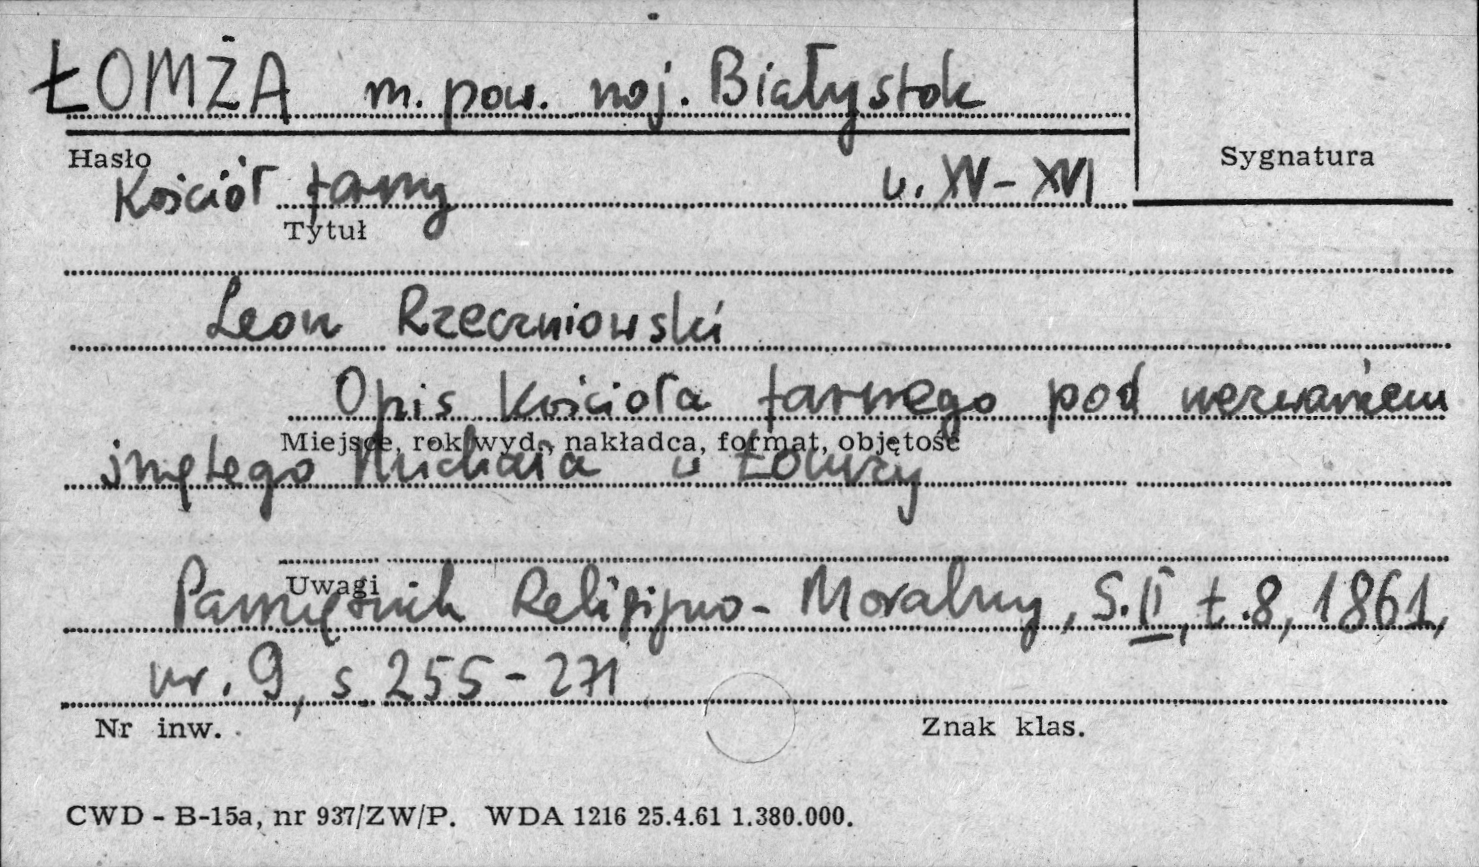 ŁOMŻA m. pow. woj. Białystok
Hasło
Sygnatura
Kościół farny w. XV-XVI
Tytuł
Leon Rzeczniowski
Opis Kościoła farnego pod wezwaniem
Miejsce, rok wyd., nakładca, format, objętość
świętego Michała w Łomży
Uwagi
Pamiętnik Religijno-Moralny, S.II, t.8, 1861,
nr. 9, s. 255-271
Nr inw.
Znak klas.
CWD - B-15a, nr 937/ZW/P. WDA 1216 25.4.61 1.380.000.